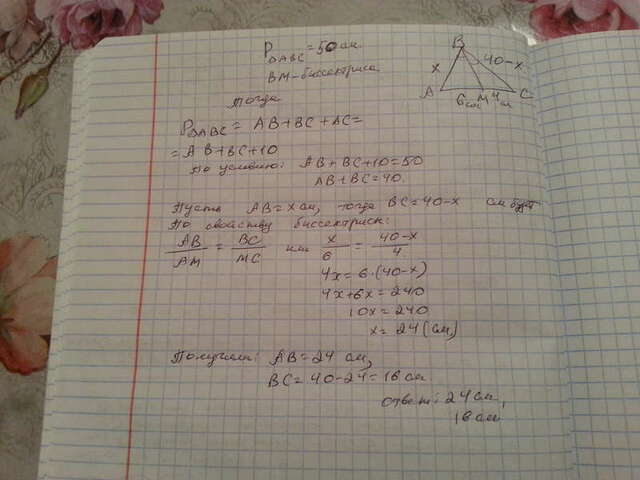 P△ABC = 50 см.
BM - биссектриса
B
x
40-x
A
6 см
M
4 см
C
Тогда
P△ABC = AB+BC+AC=
= AB+BC+10
По условию: AB+BC+10=50
AB+BC=40.
Пусть AB=x см, тогда BC=40-x см будет
По свойству биссектрисы:
AB/AM = BC/MC или x/6 = 40-x/4
4x=6·(40-x)
4x+6x=240
10x=240
x=24 (см)
Получили: AB=24 см,
BC=40-24=16 см.
Ответ: 24 см,
16 см